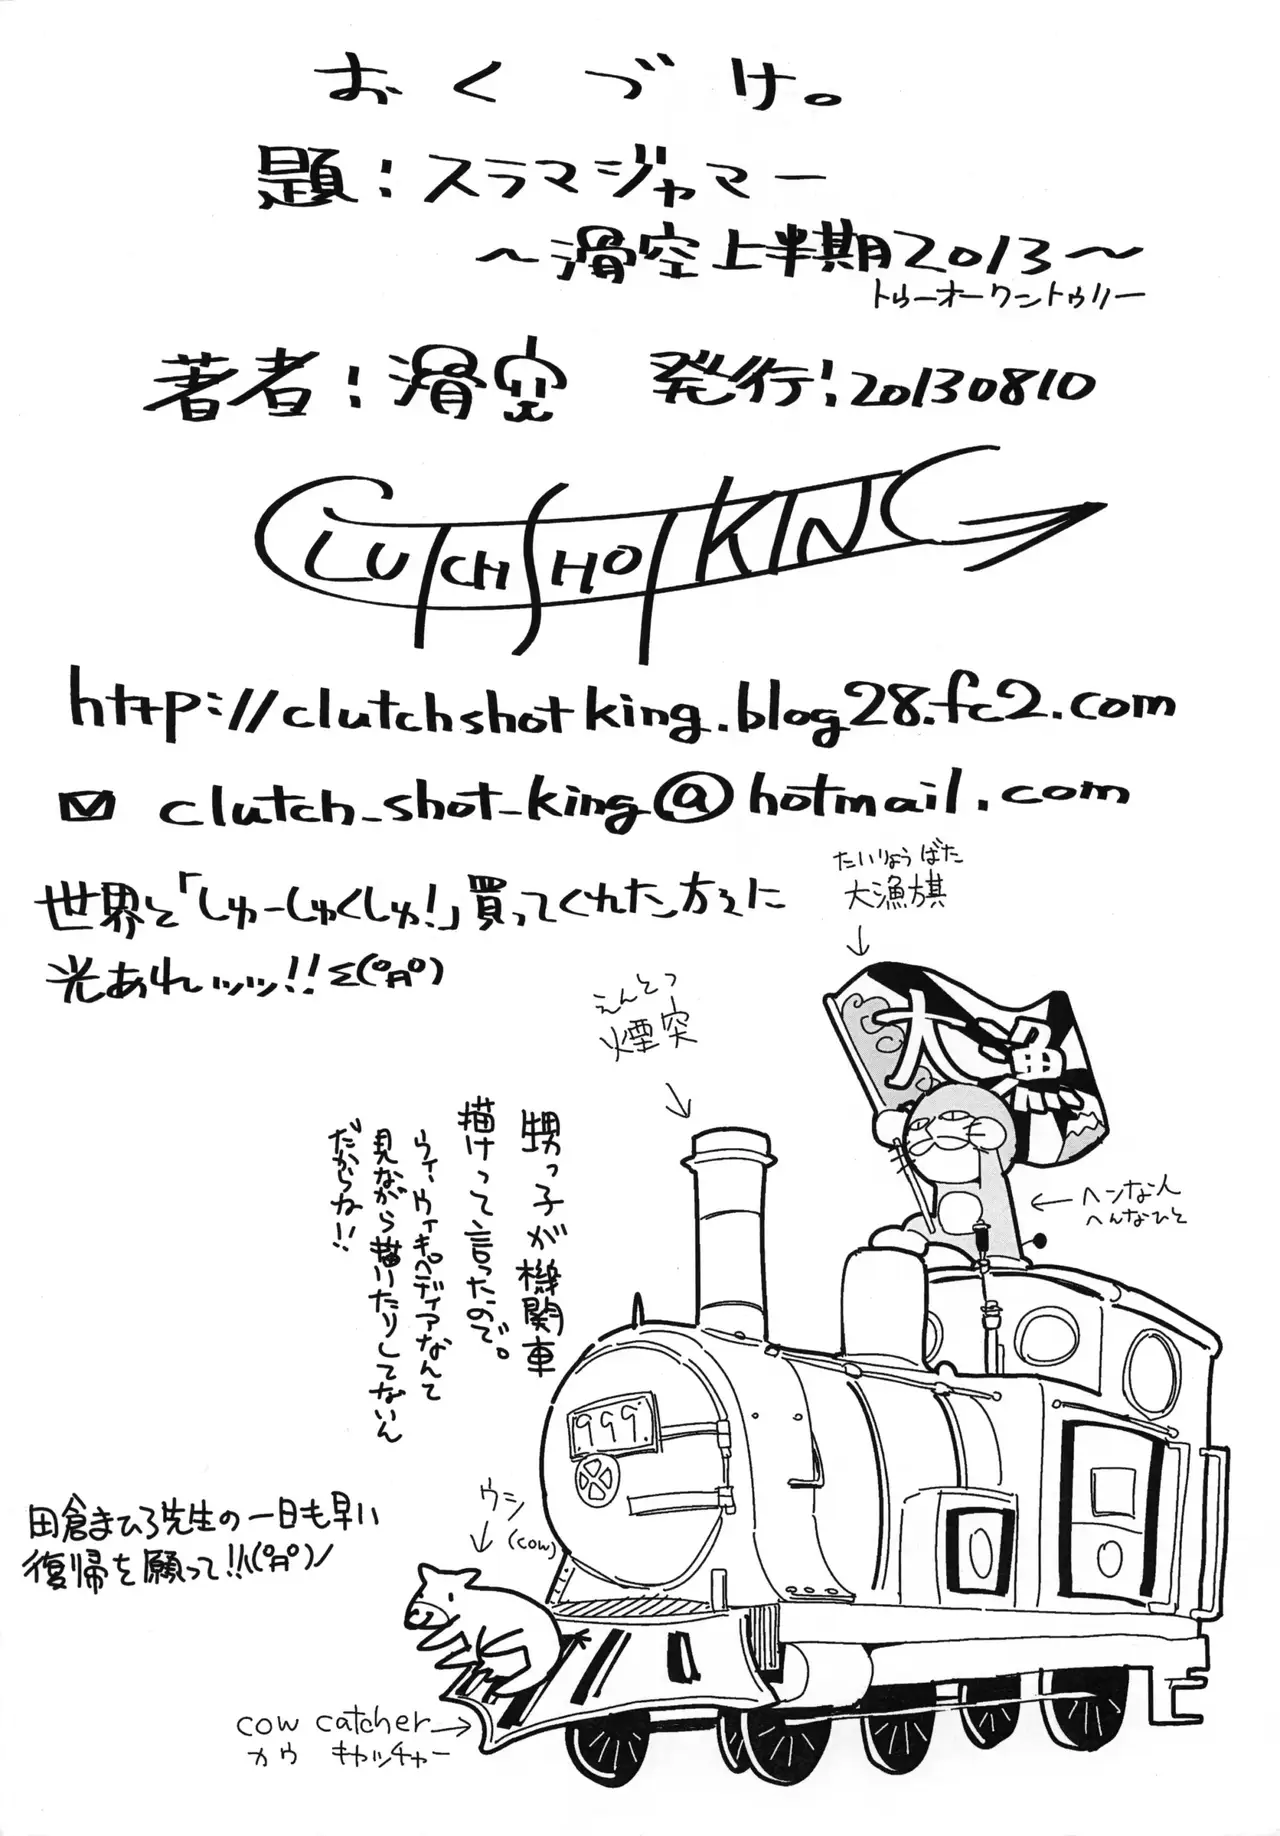 おくづけ。
題:スラマジャマー
~滑空上半期2013~
トゥーオーワントゥリー
著者:滑空 発行:20130810
CLUTCH SHOT KING
http://clutchshotking.blog28.fc2.com
clutch_shot_king@hotmail.com
世界と「しゅーしゅくしゅ!」買ってくれた方々に
光あれッッ!!Σ(ºДº)
たいりょうばた
大漁旗
大漁
えんとつ
煙突
ヘンな人
へんなひと
甥っ子が機関車
描けって言ったので。
ウィ、ウィキペディアなんて
見ながら描いたりしてないん
だからね!!
999.
田倉まひろ先生の一日も早い
復帰を願って!!\(ºДº)ノ
ウシ
(cow)
cow catcher
カウ キャッチャー